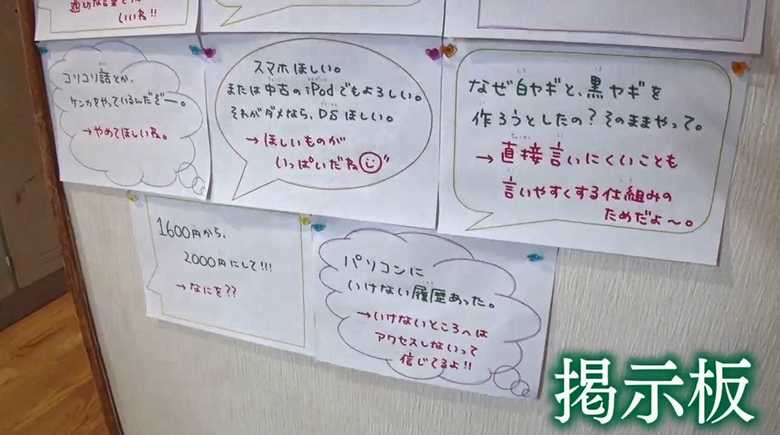 いいね!!
コリコリ話とか、
ケンカをやっているんだぞー。
→やめてほしいね。
スマホほしい。
または中古のiPodでもよろしい。
それがダメなら、DSほしい。
→ほしいものが
いっぱいだね
なぜ白ヤギと、黒ヤギを
作ろうとしたの?そのままやって。
→直接言いにくいことも
言いやすくする仕組みの
ためだよ〜。
1600円から、
2000円にして!!!
→なにを??
パソコンに
いけない履歴あった。
→いけないところへは
アクセスしないって
信じてるよ!!
掲示板